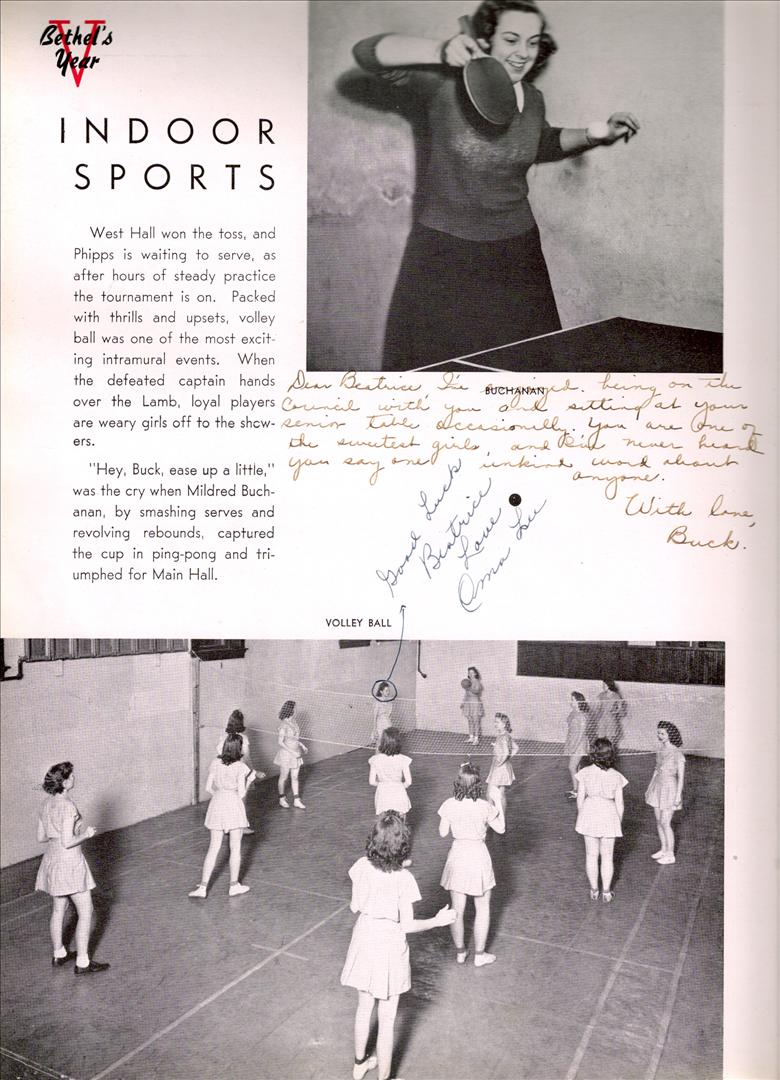 Bethel's
V
Year
INDOOR
SPORTS
West Hall won the toss, and
Phipps is waiting to serve, as
after hours of steady practice
the tournament is on. Packed
with thrills and upsets, volley
ball was one of the most excit-
ing intramural events. When
the defeated captain hands
over the Lamb, loyal players
are weary girls off to the show-
ers.
"Hey, Buck, ease up a little,"
was the cry when Mildred Buch-
anan, by smashing serves and
revolving rebounds, captured
the cup in ping-pong and tri-
umphed for Main Hall.
BUCHANAN
Dear Beatrice, I've enjoyed being on the
Council with you and sitting at your
senior table occasionally. You are one of
the sweetest girls, and I've never heard
you say one unkind word about
anyone.
With love,
Buck.
Good Luck
Beatrice
Love
Oma Lee
VOLLEY BALL